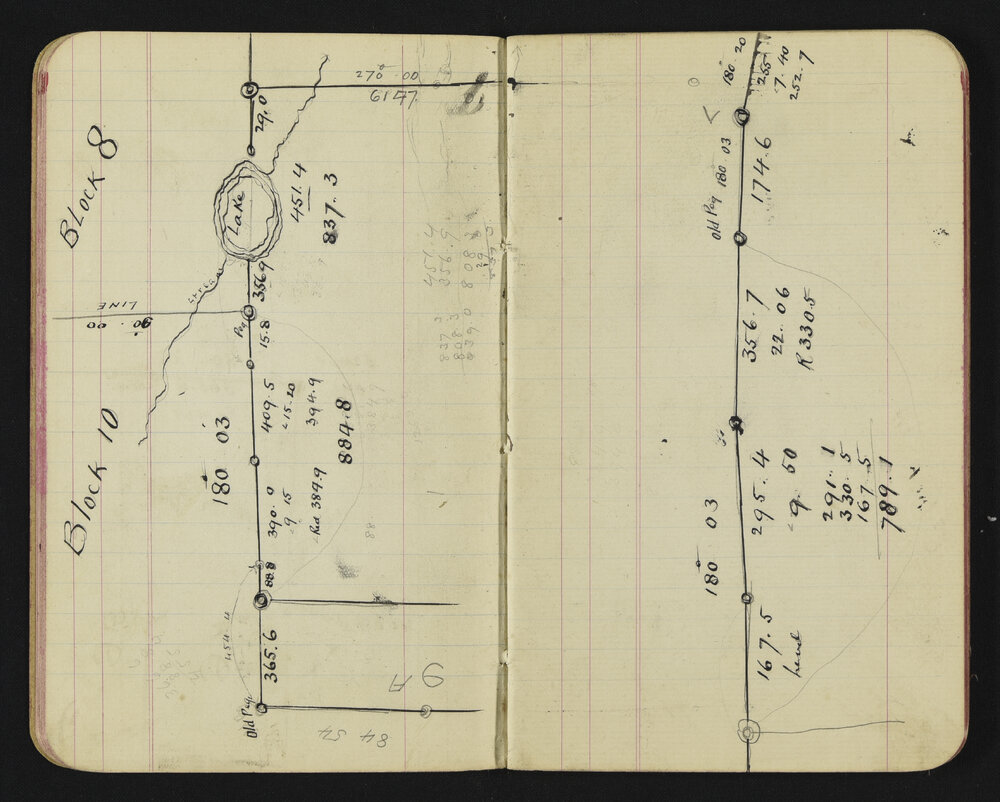 Block 8
Block 10
LINE
90° 00
270° 00
6147
29.0
Lake
451.4
837.3
356.9
Peg
15.8
409.5
-15.20
394.9
180° 03
884.8
390.0
-9 15
Red 389.9
88.8
454.4
365.6
Old Peg
9A
84 54
451.4
356.9
837.3
808.3
839.0
88
180° 20
255
7.40
252.7
180 03
174.6
Old Peg
356.7
22.06
R 330.5
180° 03
295.4
-9.50
291.1
330.5
167.5
789.1
167.5
Level